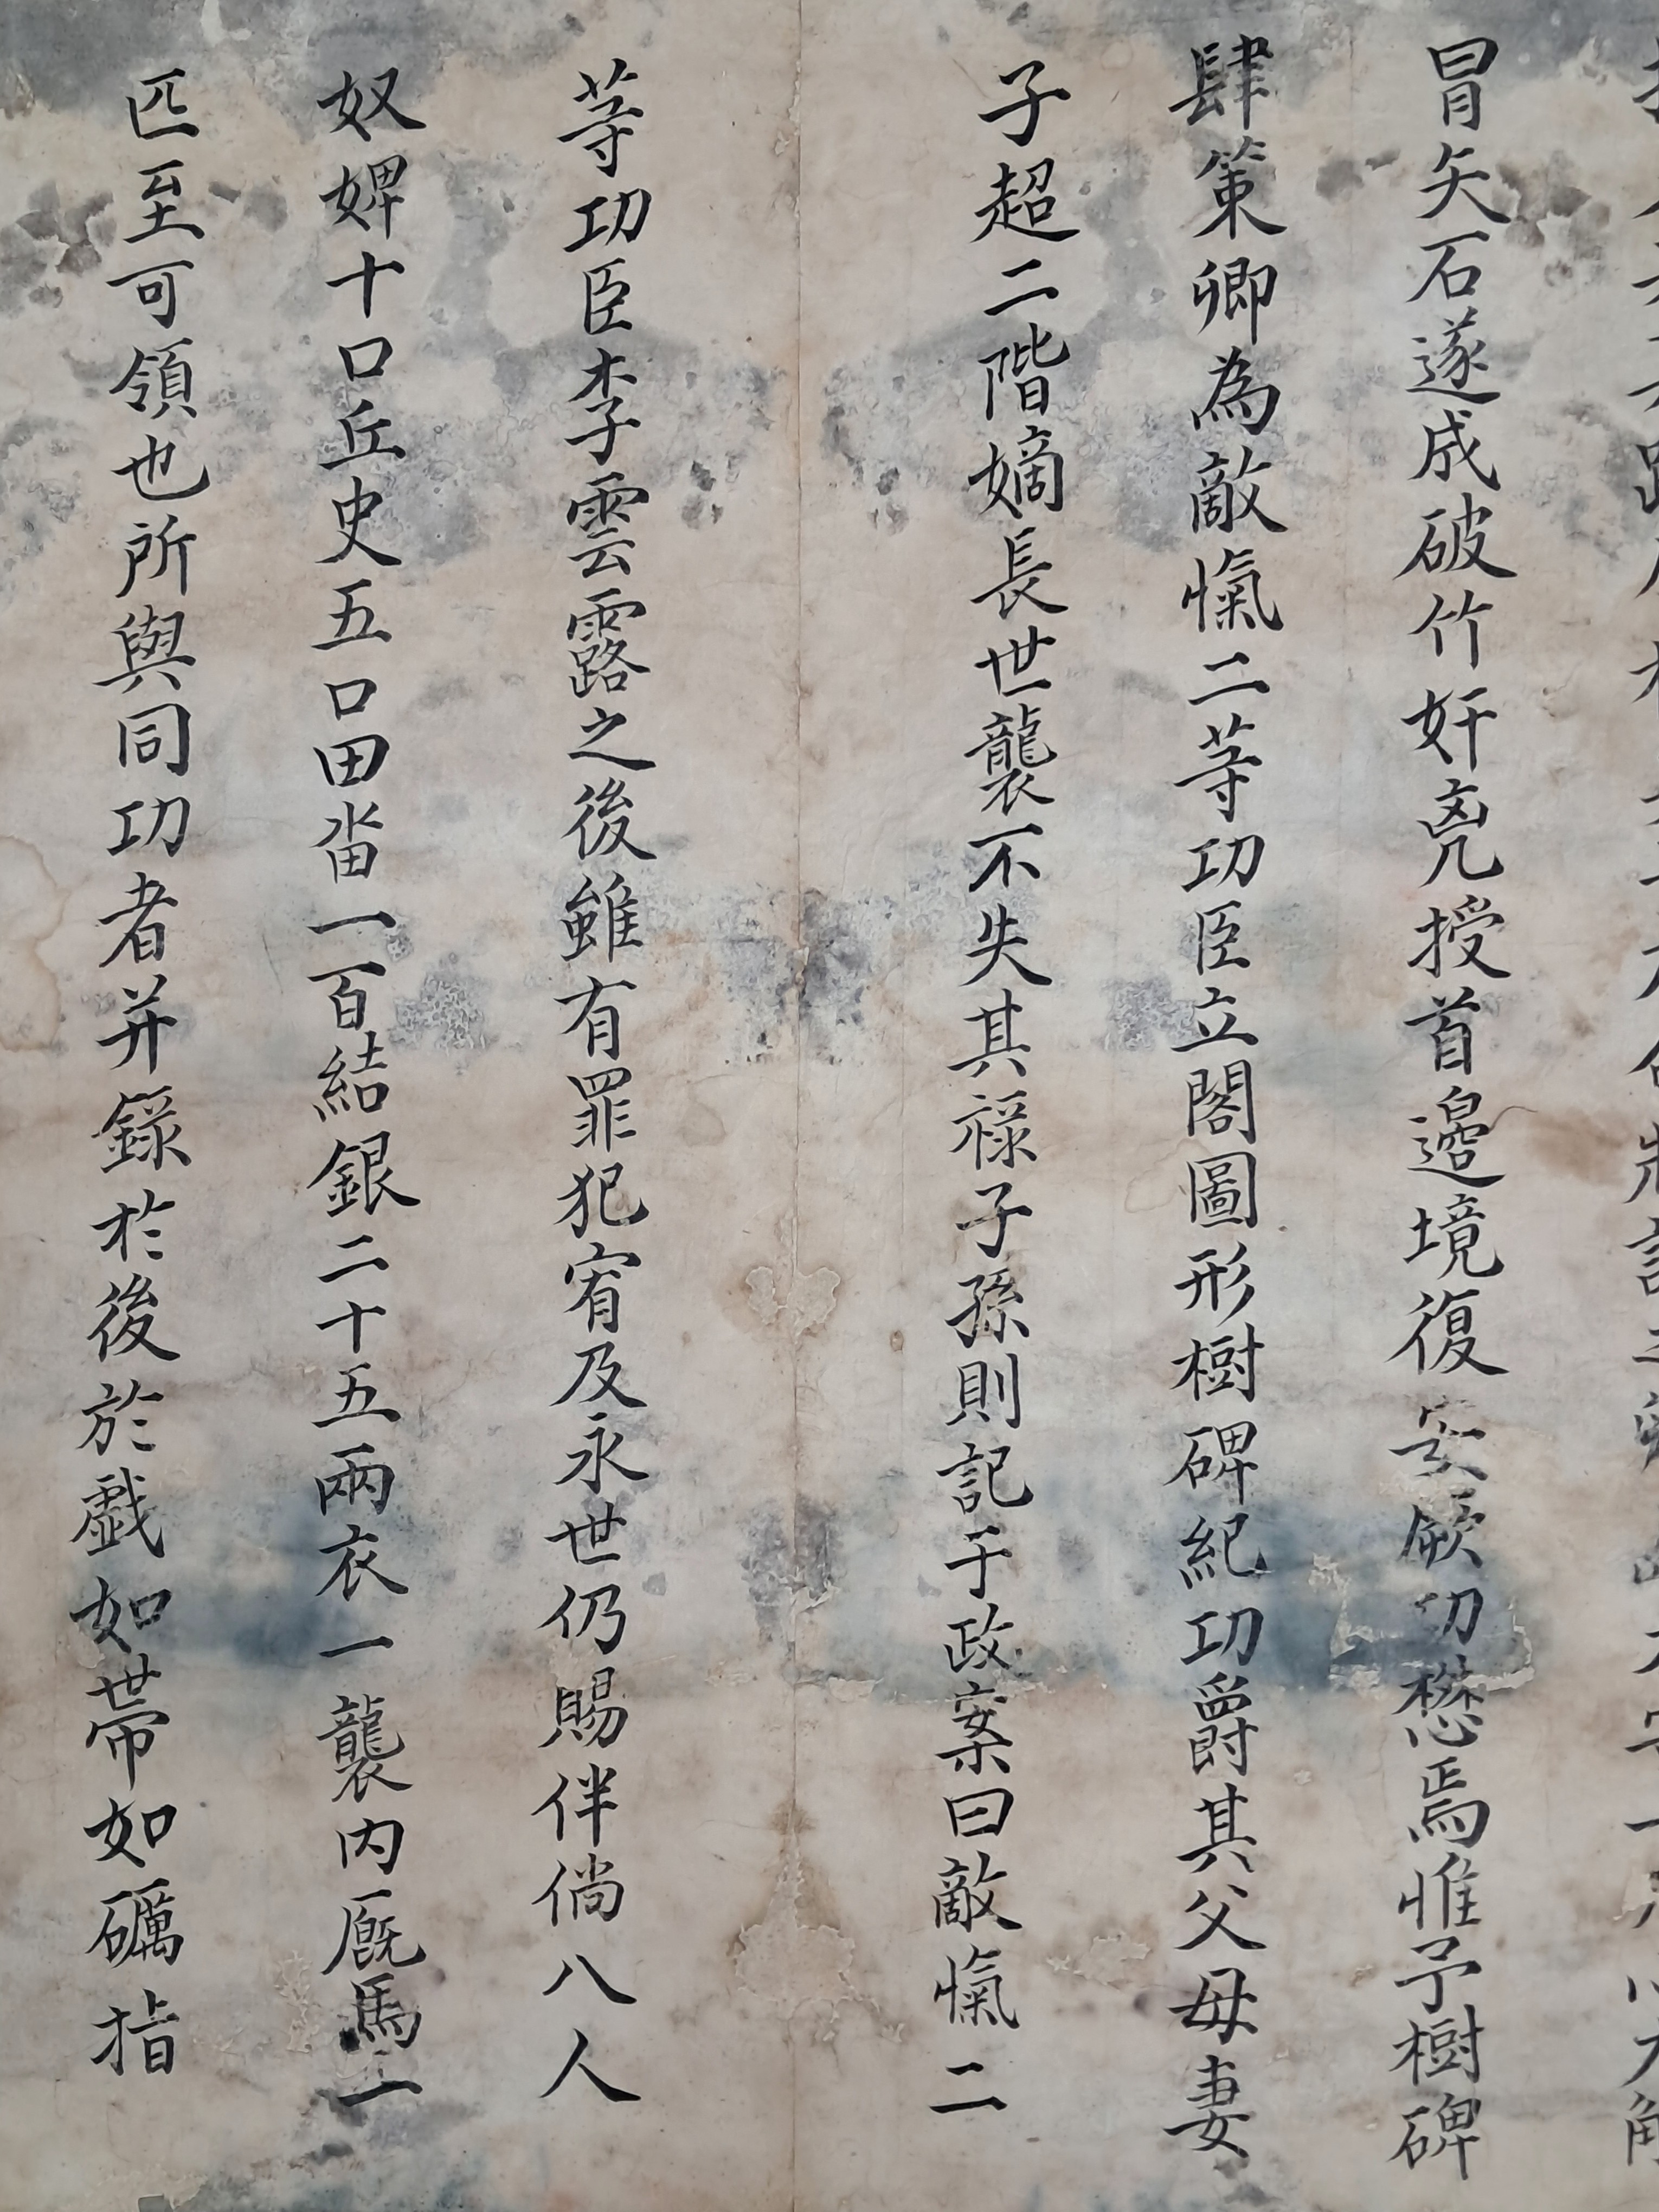 冒矢石遂成破竹奸兇授首邊境復安厥功懋焉惟予樹碑
肆策卿為敵愾二等功臣立閣圖形樹碑紀功爵其父母妻
子超二階嫡長世襲不失其祿子孫則記于政案曰敵愾二
等功臣李雲露之後雖有罪犯宥及永世仍賜伴倘八人
奴婢十口丘史五口田畓一百結銀二十五兩衣一襲內廐馬一
匹至可領也所與同功者并錄於後於戲如帶如礪指